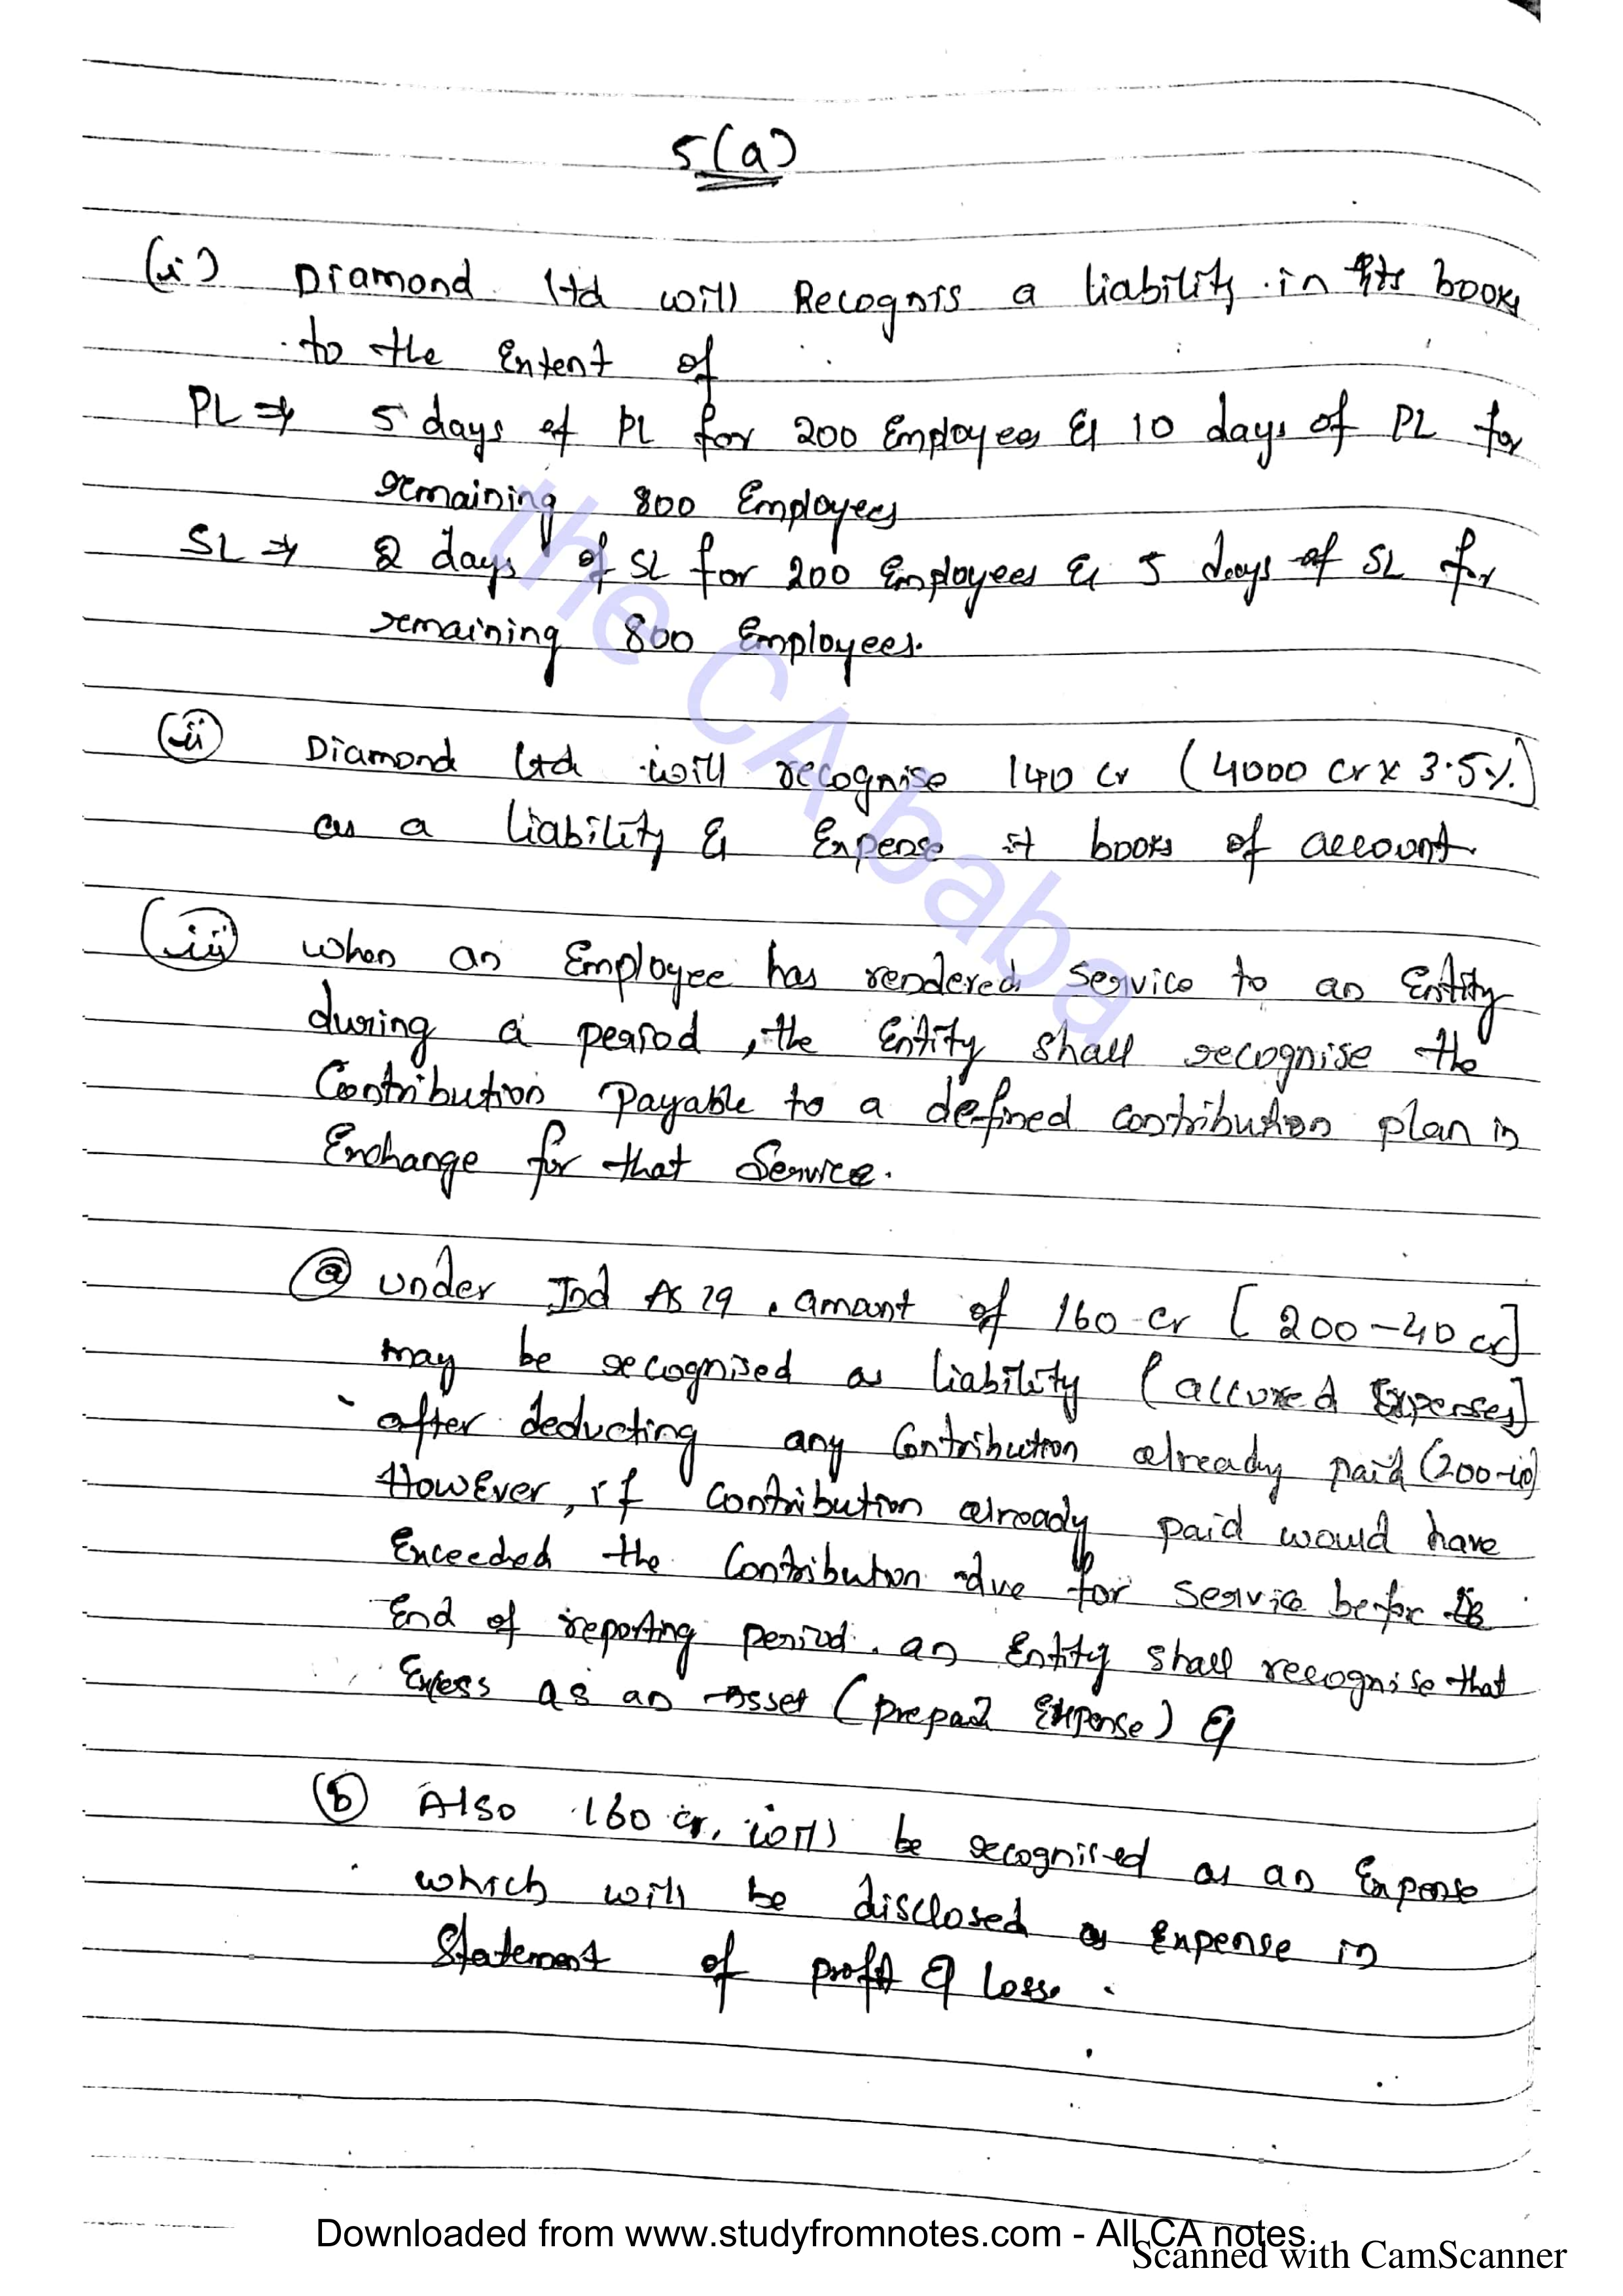 5(a)
(i) Diamond Ltd will Recognis a liability in its books
to the Extent of
PL ⇒ 5 days of PL for 200 Employees & 10 days of PL for
remaining 800 Employees
SL ⇒ 2 days of SL for 200 Employees & 5 days of SL for
remaining 800 Employees.
(ii) Diamond Ltd will recognise 140 cr (4000 cr x 3.5%)
as a liability & Expense it books of account.
(iii) when an Employee has rendered service to an Entity
during a period, the Entity shall recognise the
Contribution Payable to a defined contribution plan in
Exchange for that Service.
(a) under Ind AS 19, amount of 160 cr [200-40 cr]
may be recognised as liability (accured Expenses)
after deducting any Contribution already paid (200-40)
However, if contribution already paid would have
Exceeded the Contribution due for service before the
End of reporting period, an Entity shall recognise that
Excess as an asset (prepaid Expense) &
(b) Also 160 cr, will be recognised as an Expense
which will be disclosed as Expense in
Statement of profit & Loss.
the CA baba
Downloaded from www.studyfromnotes.com - All CA notes
Scanned with CamScanner